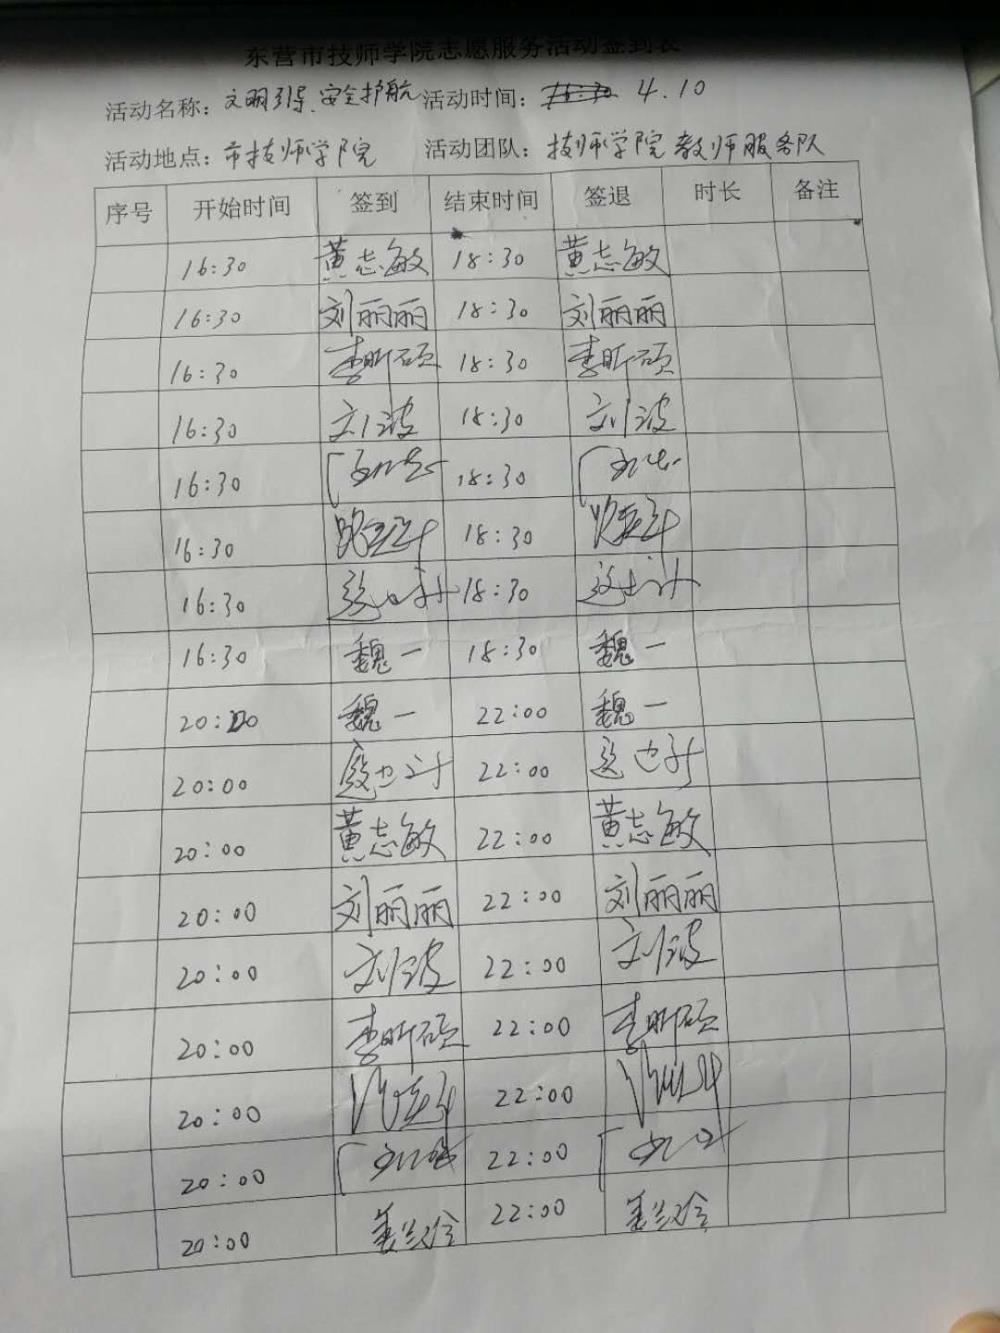 东营市技师学院志愿服务活动签到表
活动名称：文明引导、安全护航 活动时间： 4.10
活动地点：市技师学院 活动团队：技师学院教师服务队
序号 开始时间 签到 结束时间 签退 时长 备注
16:30 黄志敏 18:30 黄志敏
16:30 刘丽丽 18:30 刘丽丽
16:30 李昕硕 18:30 李昕硕
16:30 刘波 18:30 刘波
16:30 18:30
16:30 18:30
16:30 18:30
16:30 魏一 18:30 魏一
20:00 魏一 22:00 魏一
20:00 22:00
20:00 黄志敏 22:00 黄志敏
20:00 刘丽丽 22:00 刘丽丽
20:00 刘波 22:00 刘波
20:00 李昕硕 22:00 李昕硕
20:00 22:00
20:00 22:00
20:00 22:00